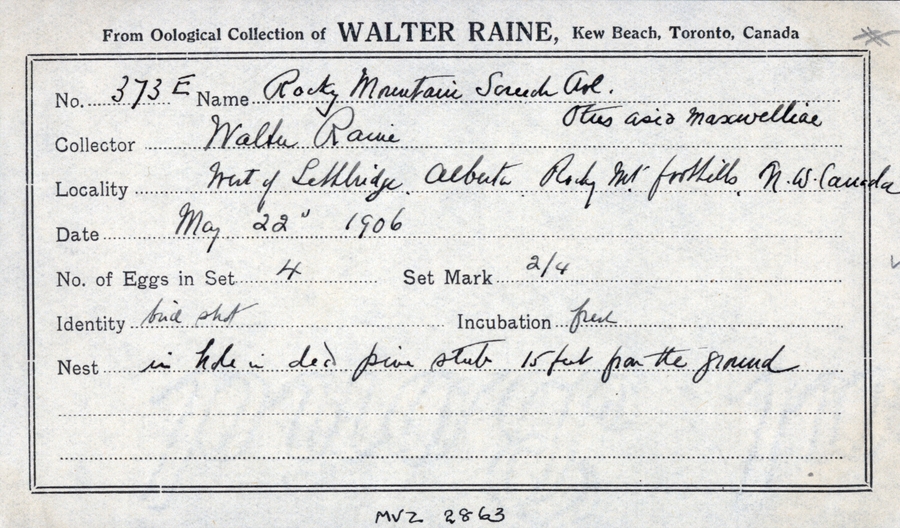 From Oological Collection of WALTER RAINE, Kew Beach, Toronto, Canada
No. 373 E Name Rocky Mountain Screech Owl.
Otus asio Maxwelliae
Collector Walter Raine
Locality West of Lethbridge. Alberta Rocky Mt foothills. N.W. Canada
Date May 22" 1906
No. of Eggs in Set 4 Set Mark 2/4
Identity bird shot Incubation fresh
Nest in hole in ded pine stub 15 feet from the ground
MVZ 2863